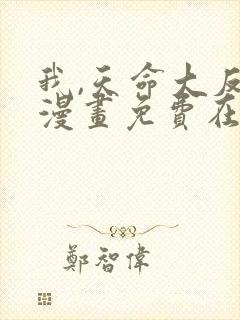 我,天命大反
漫畫免費在
鄭智偉